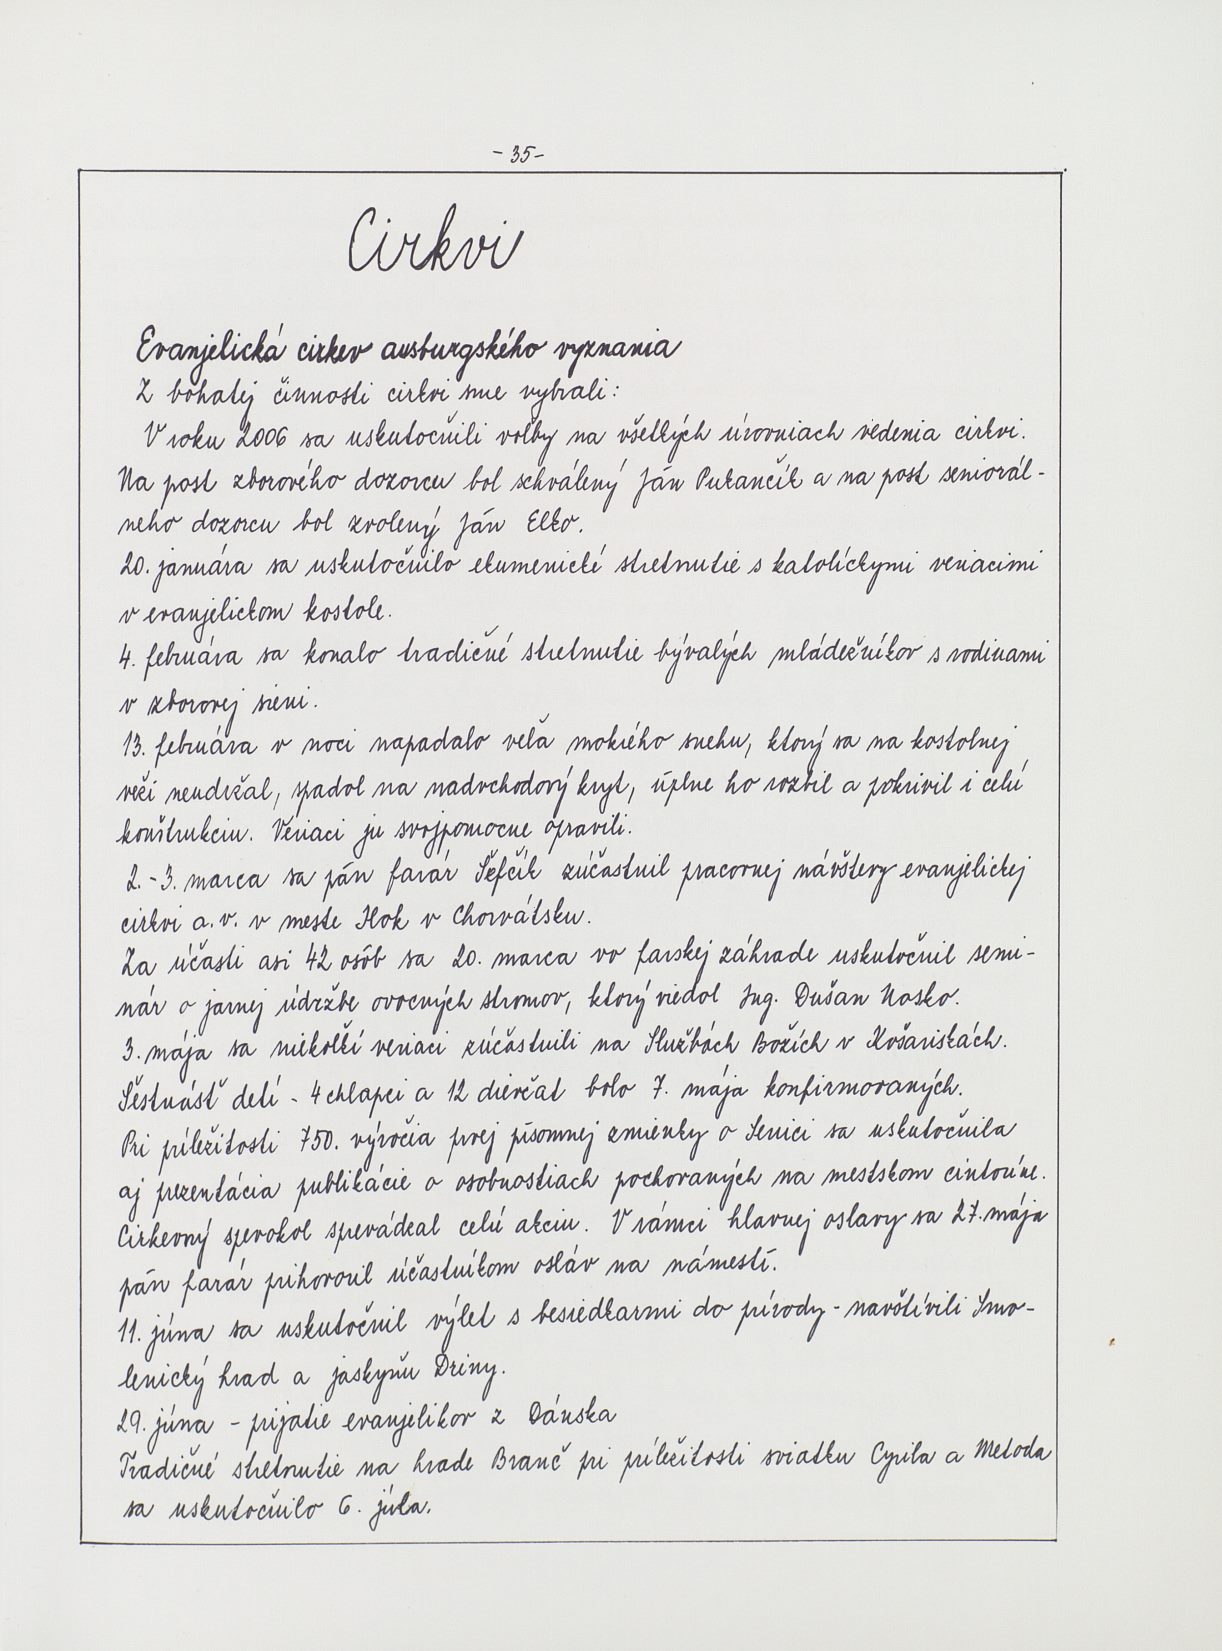 - 35 -
Cirkvi
Evanjelická cirkev ausburgského vyznania
Z bohatej činnosti cirkvi sme vybrali:
V roku 2006 sa uskutočnili voľby na všetkých úrovniach vedenia cirkvi.
Na post zborového dozorcu bol schválený Ján Pukančík a na post seniorál-
neho dozorcu bol zvolený Ján Elko.
20. januára sa uskutočnilo ekumenické stretnutie s katolíckymi veriacimi
v evanjelickom kostole.
4. februára sa konalo tradičné stretnutie bývalých mládežníkov s rodinami
v zborovej sieni.
13. februára v noci napadalo veľa mokrého snehu, ktorý sa na kostolnej
veži neudržal, spadol na nadvchodový kryt, úplne ho rozbil a pokrivil i celú
konštrukciu. Veriaci ju svojpomocne opravili.
2. - 3. marca sa pán farár Šefčík zúčastnil pracovnej návštevy evanjelickej
cirkvi a. v. v meste Ilok v Chorvátsku.
Za účasti asi 42 osôb sa 20. marca vo farskej záhrade uskutočnil semi-
nár o jarnej údržbe ovocných stromov, ktorý viedol Ing. Dušan Nosko.
3. mája sa niekoľkí veriaci zúčastnili na Službách Božích v Košariskách.
Šestnásť detí - 4 chlapci a 12 dievčat bolo 7. mája konfirmovaných.
Pri príležitosti 750. výročia prvej písomnej zmienky o Senici sa uskutočnila
aj prezentácia publikácie o osobnostiach pochovaných na mestskom cintoríne.
Cirkevný spevokol sprevádzal celú akciu. V rámci hlavnej oslavy sa 27. mája
pán farár prihovoril účastníkom osláv na námestí.
11. júna sa uskutočnil výlet s besiedkarmi do prírody - navštívili Smo-
lenický hrad a jaskyňu Driny.
29. júna - prijatie evanjelikov z Dánska
Tradičné stretnutie na hrade Branč pri príležitosti sviatku Cyrila a Metoda
sa uskutočnilo 6. júla.